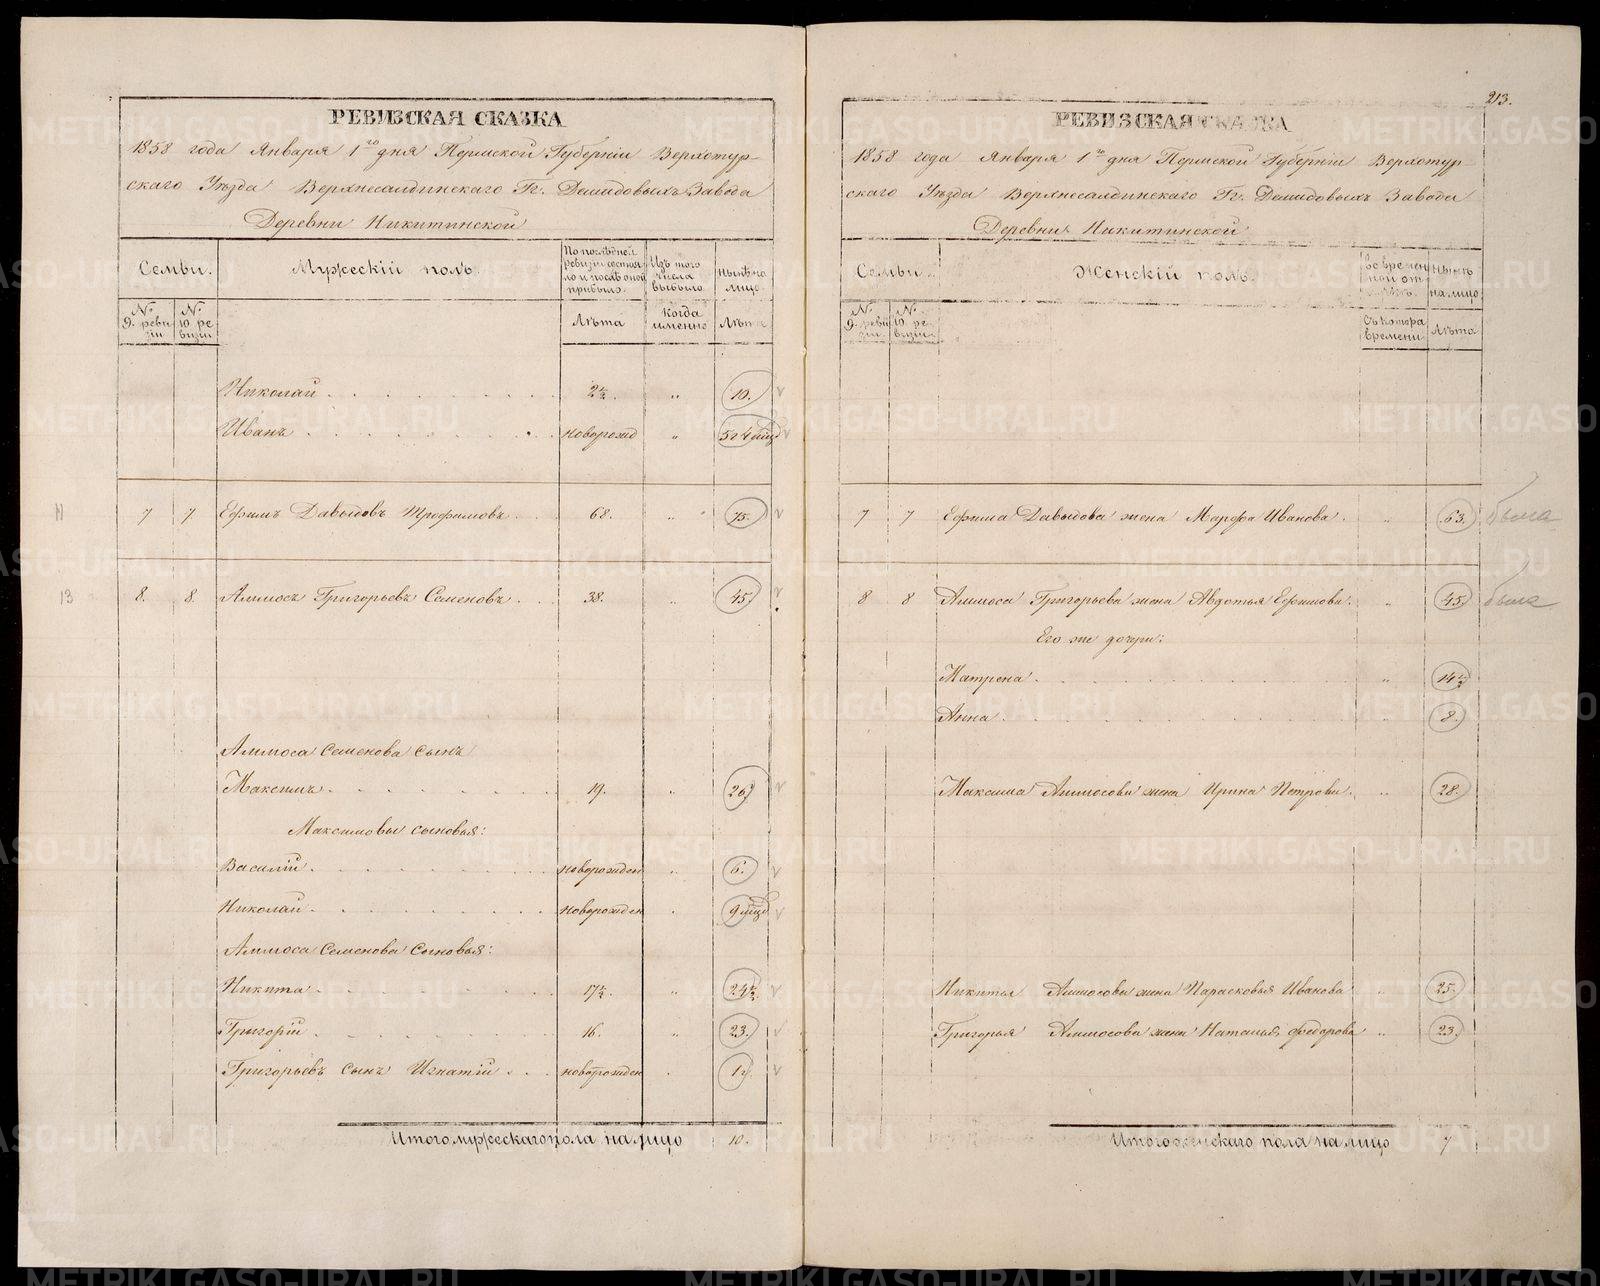 РЕВИЗСКАЯ СКАЗКА
1858 года Января 1го дня Пермской Губерніи Верхотур-
скаго Уѣзда Верхнесалдинскаго Гг. Демидовыхъ Завода
Деревни Никитинской
Семьи. Мужескій полъ.
По послѣдней ревизіи состояло и послѣ оной прибыло.
Изъ того числа выбыло.
Нынѣ на лицо.
№ 9. ревизіи
№ 10 ревизіи
Лѣта
Когда именно
Лѣта
Николай 2½. " 10.
Иванъ новорожд " 5 ¼ мцд
7 7 Ефимъ Давыдовъ Трофимовъ 68. " 75.
13 8. 8. Аммосъ Григорьевъ Семеновъ 38. " 45.
Аммоса Семенова сынъ
Максимъ 19. " 26.
Максимовы сыновья:
Василій новорожден " 6.
Николай новорожден " 9 мцд
Аммоса Семенова Сыновья:
Никита 17½. " 24½.
Григорій 16. " 23.
Григорьевъ сынъ Игнатій новорожден 1.
Итого мужескаго пола на лицо 10.
213.
РЕВИЗСКАЯ СКАЗКА
1858 года Января 1го дня Пермской Губерніи Верхотур-
скаго Уѣзда Верхнесалдинскаго Гг. Демидовыхъ Завода
Деревни Никитинской
Семьи. Женскій полъ.
во времен ной от лучкѣ.
Нынѣ на лицо
№ 9. ревизіи
№ 10 ревизіи
Съ котора времени
Лѣта
7 7 Ефима Давыдова жена Марфа Иванова. " 63. была
8 8 Аммоса Григорьева жена Авдотья Ефимова. " 45. была
Его же дочери:
Матрена " 14½
Анна 8.
Максима Аммосова жена Ирина Петрова. " 28.
Никиты Аммосова жена Парасковья Иванова " 25.
Григорья Аммосова жена Наталья Федорова " 23.
Итого женскаго пола на лицо 7
METRIKI.GASO-URAL.RU